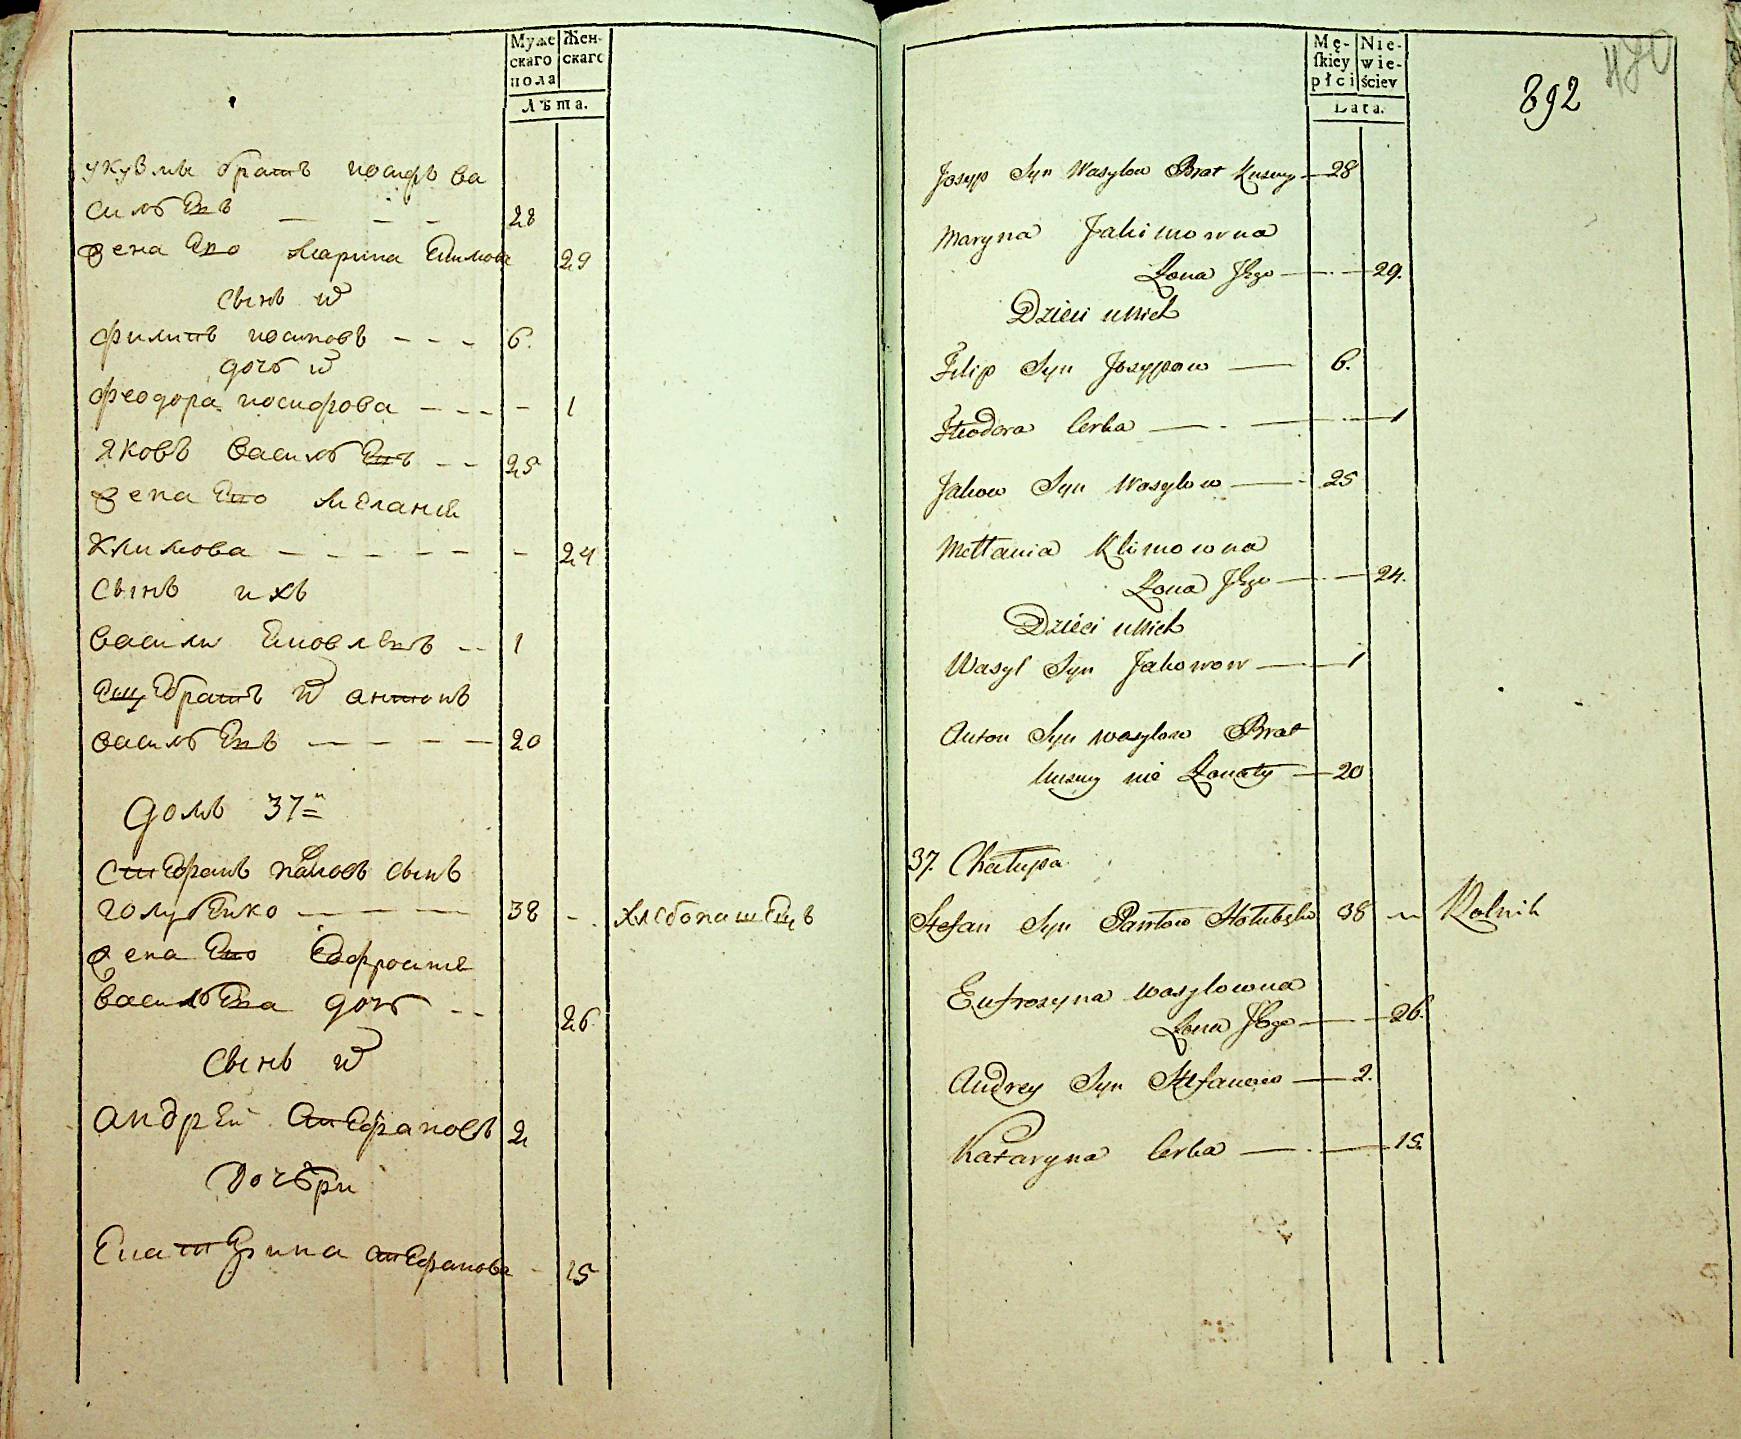 Муже
скаго
пола
Жен-
скаго
Лѣта.
укузмы братъ иосифъ ва
сильевъ — — — 28
жена его марина Екимова 29
сынъ их
филипъ иосиповъ — — — 6.
дочь их
феодора иосифова — — — — 1
яковъ васильевъ — — 25
жена его мелания
климова — — — — — — 24
сынъ ихъ
василий Яковлевъ — — 1
Еще братъ их антонъ
васильевъ — — — — 20
Домъ 37й
стефанъ павловъ сынъ
голубенко — — — 38 — хлебопашецъ
жена его Еофросиня
васильева дочь — — 26
сынъ их
андрей стефановъ 2
дочери
Екатерина стефанова — 15
Mę-
skiey
płci
Nie-
wie-
ściey
Lata.
892
470
Josyp Syn Wasylow Brat Kuzmy — 28
Maryna Jakimowna
Żona Jego — . — 29.
Dzieci u Nich
Filip Syn Josypow — 6.
Fteodora Corka — . — . — 1
Jakow Syn Wasylow — 25
Mełłania Klimowna
Żona Jego — . — 24.
Dzieci u Nich
Wasyl Syn Jakowow — 1
Anton Syn Wasylow Brat
Kuzmy nie Żonaty — 20
37. Chałupa
Stefan Syn Pawłow Hołubęko 38 — " Rolnik
Eufrozyna Wasylowna
Żona Jego — . — 26.
Andrey Syn Stefanow — 2.
Kataryna Corka — . — 15.